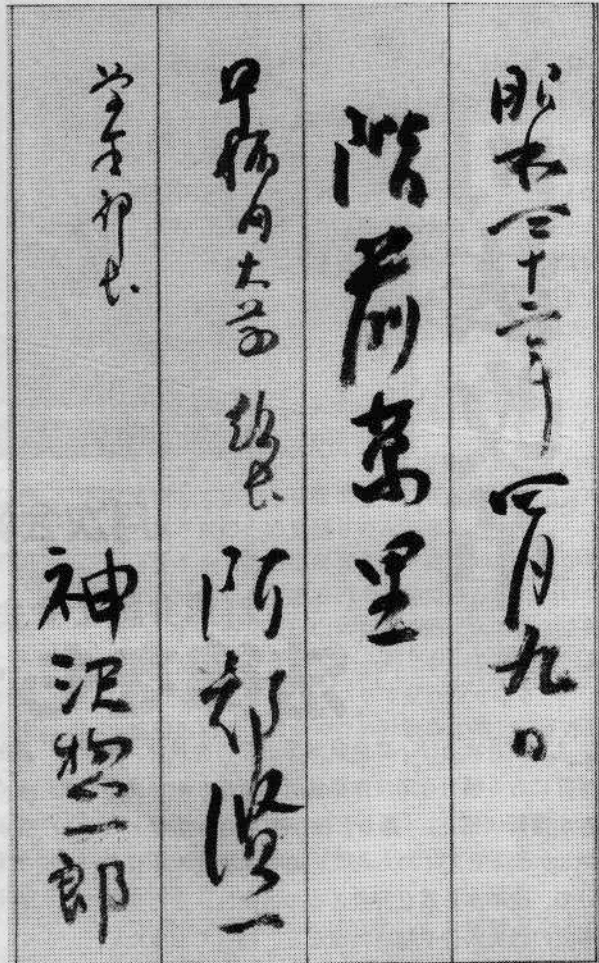 昭和四十二年 四月九日
階前萬里
早稲田大学 総長 阿部賢一
学生部長 神沢惣一郎